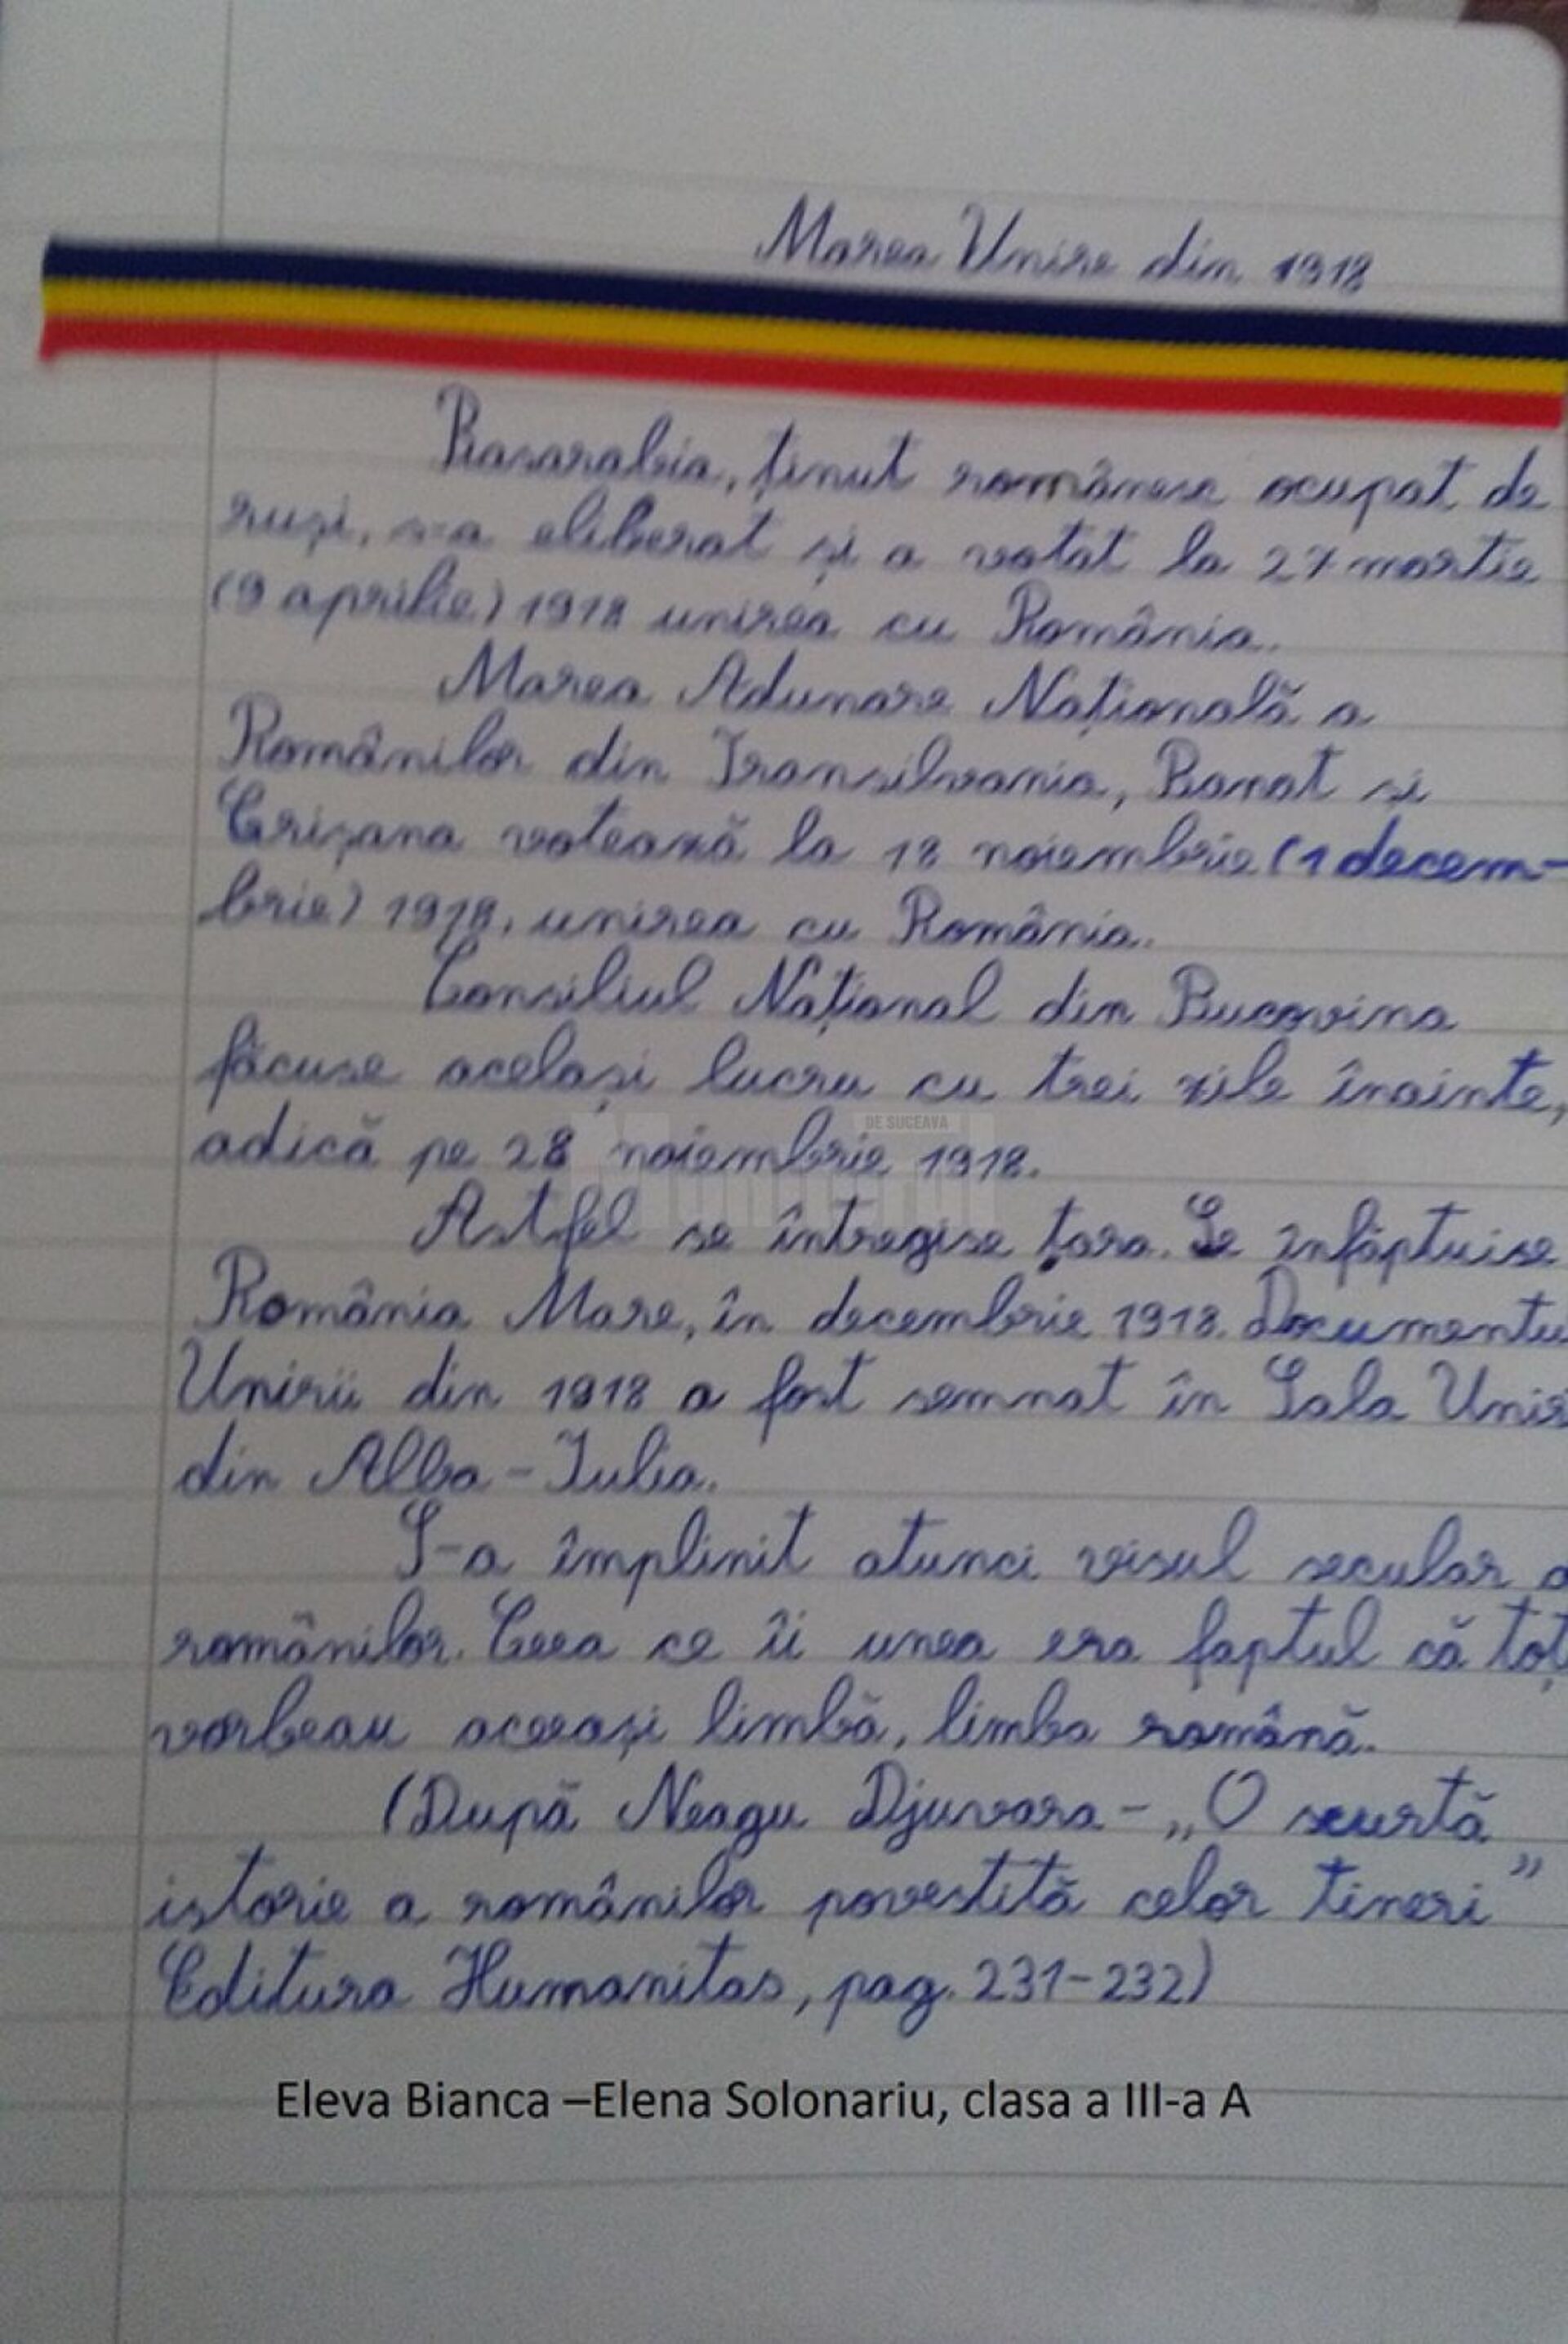 Marea Unire din 1918
Basarabia, ținut românesc ocupat de
ruși, s-a eliberat și a votat la 27 martie
(9 aprilie) 1918 unirea cu România.
Marea Adunare Națională a
Românilor din Transilvania, Banat și
Crișana votează la 18 noiembrie (1 decem-
brie) 1918, unirea cu România.
Consiliul Național din Bucovina
făcuse același lucru cu trei zile înainte,
adică pe 28 noiembrie 1918.
DE SUCEAVA
Monitorul
Astfel se întregise țara. Se înfăptuise
România Mare, în decembrie 1918. Documentu
Unirii din 1918 a fost semnat în Sala Unir
din Alba-Iulia.
S-a împlinit atunci visul secular a
românilor. Ceea ce îi unea era faptul că toț
vorbeau aceeași limbă, limba română.
(După Neagu Djuvara - „O scurtă
istorie a românilor povestită celor tineri”
Editura Humanitas, pag. 231-232)
Eleva Bianca –Elena Solonariu, clasa a III-a A